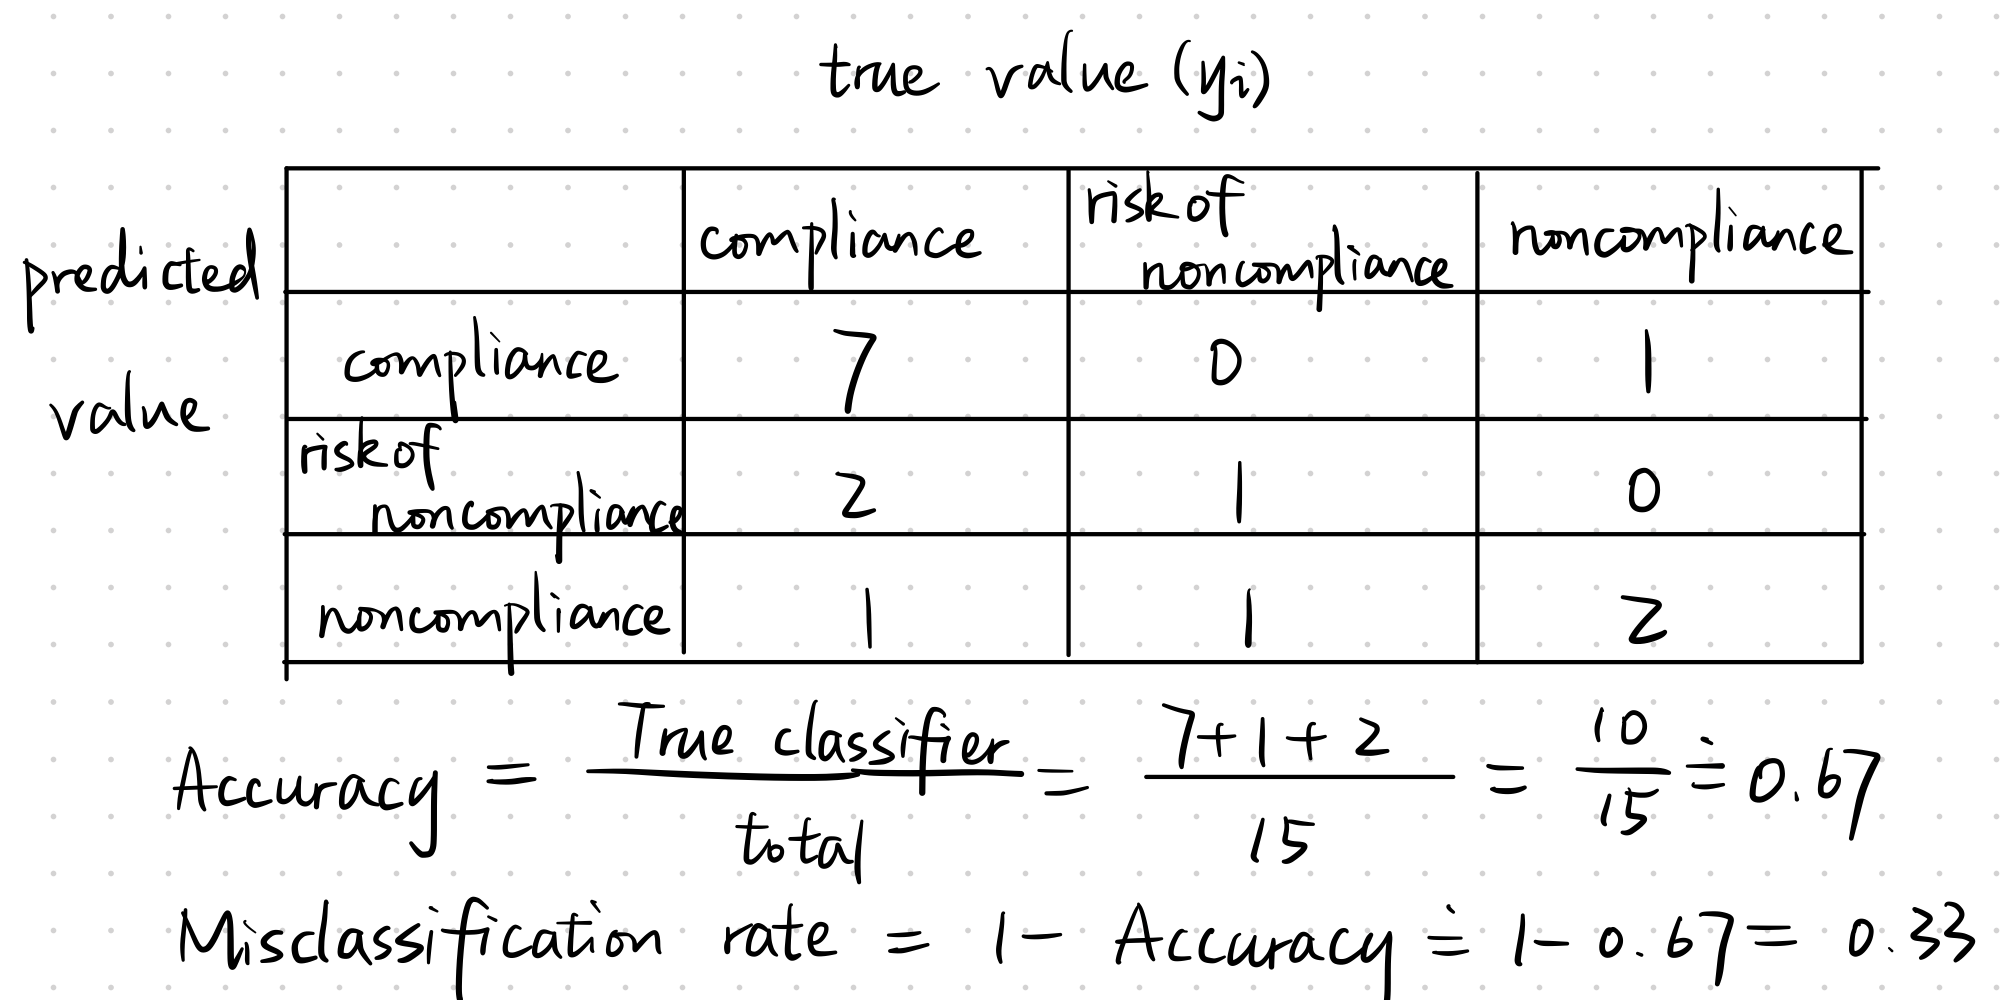 true value (yi)
predicted value
compliance | risk of noncompliance | noncompliance
compliance | 7 | 0 | 1
risk of noncompliance | 2 | 1 | 0
noncompliance | 1 | 1 | 2
Accuracy = True classifier / total = 7+1+2 / 15 = 10/15 ≐ 0.67
Misclassification rate = 1 - Accuracy ≐ 1 - 0.67 = 0.33